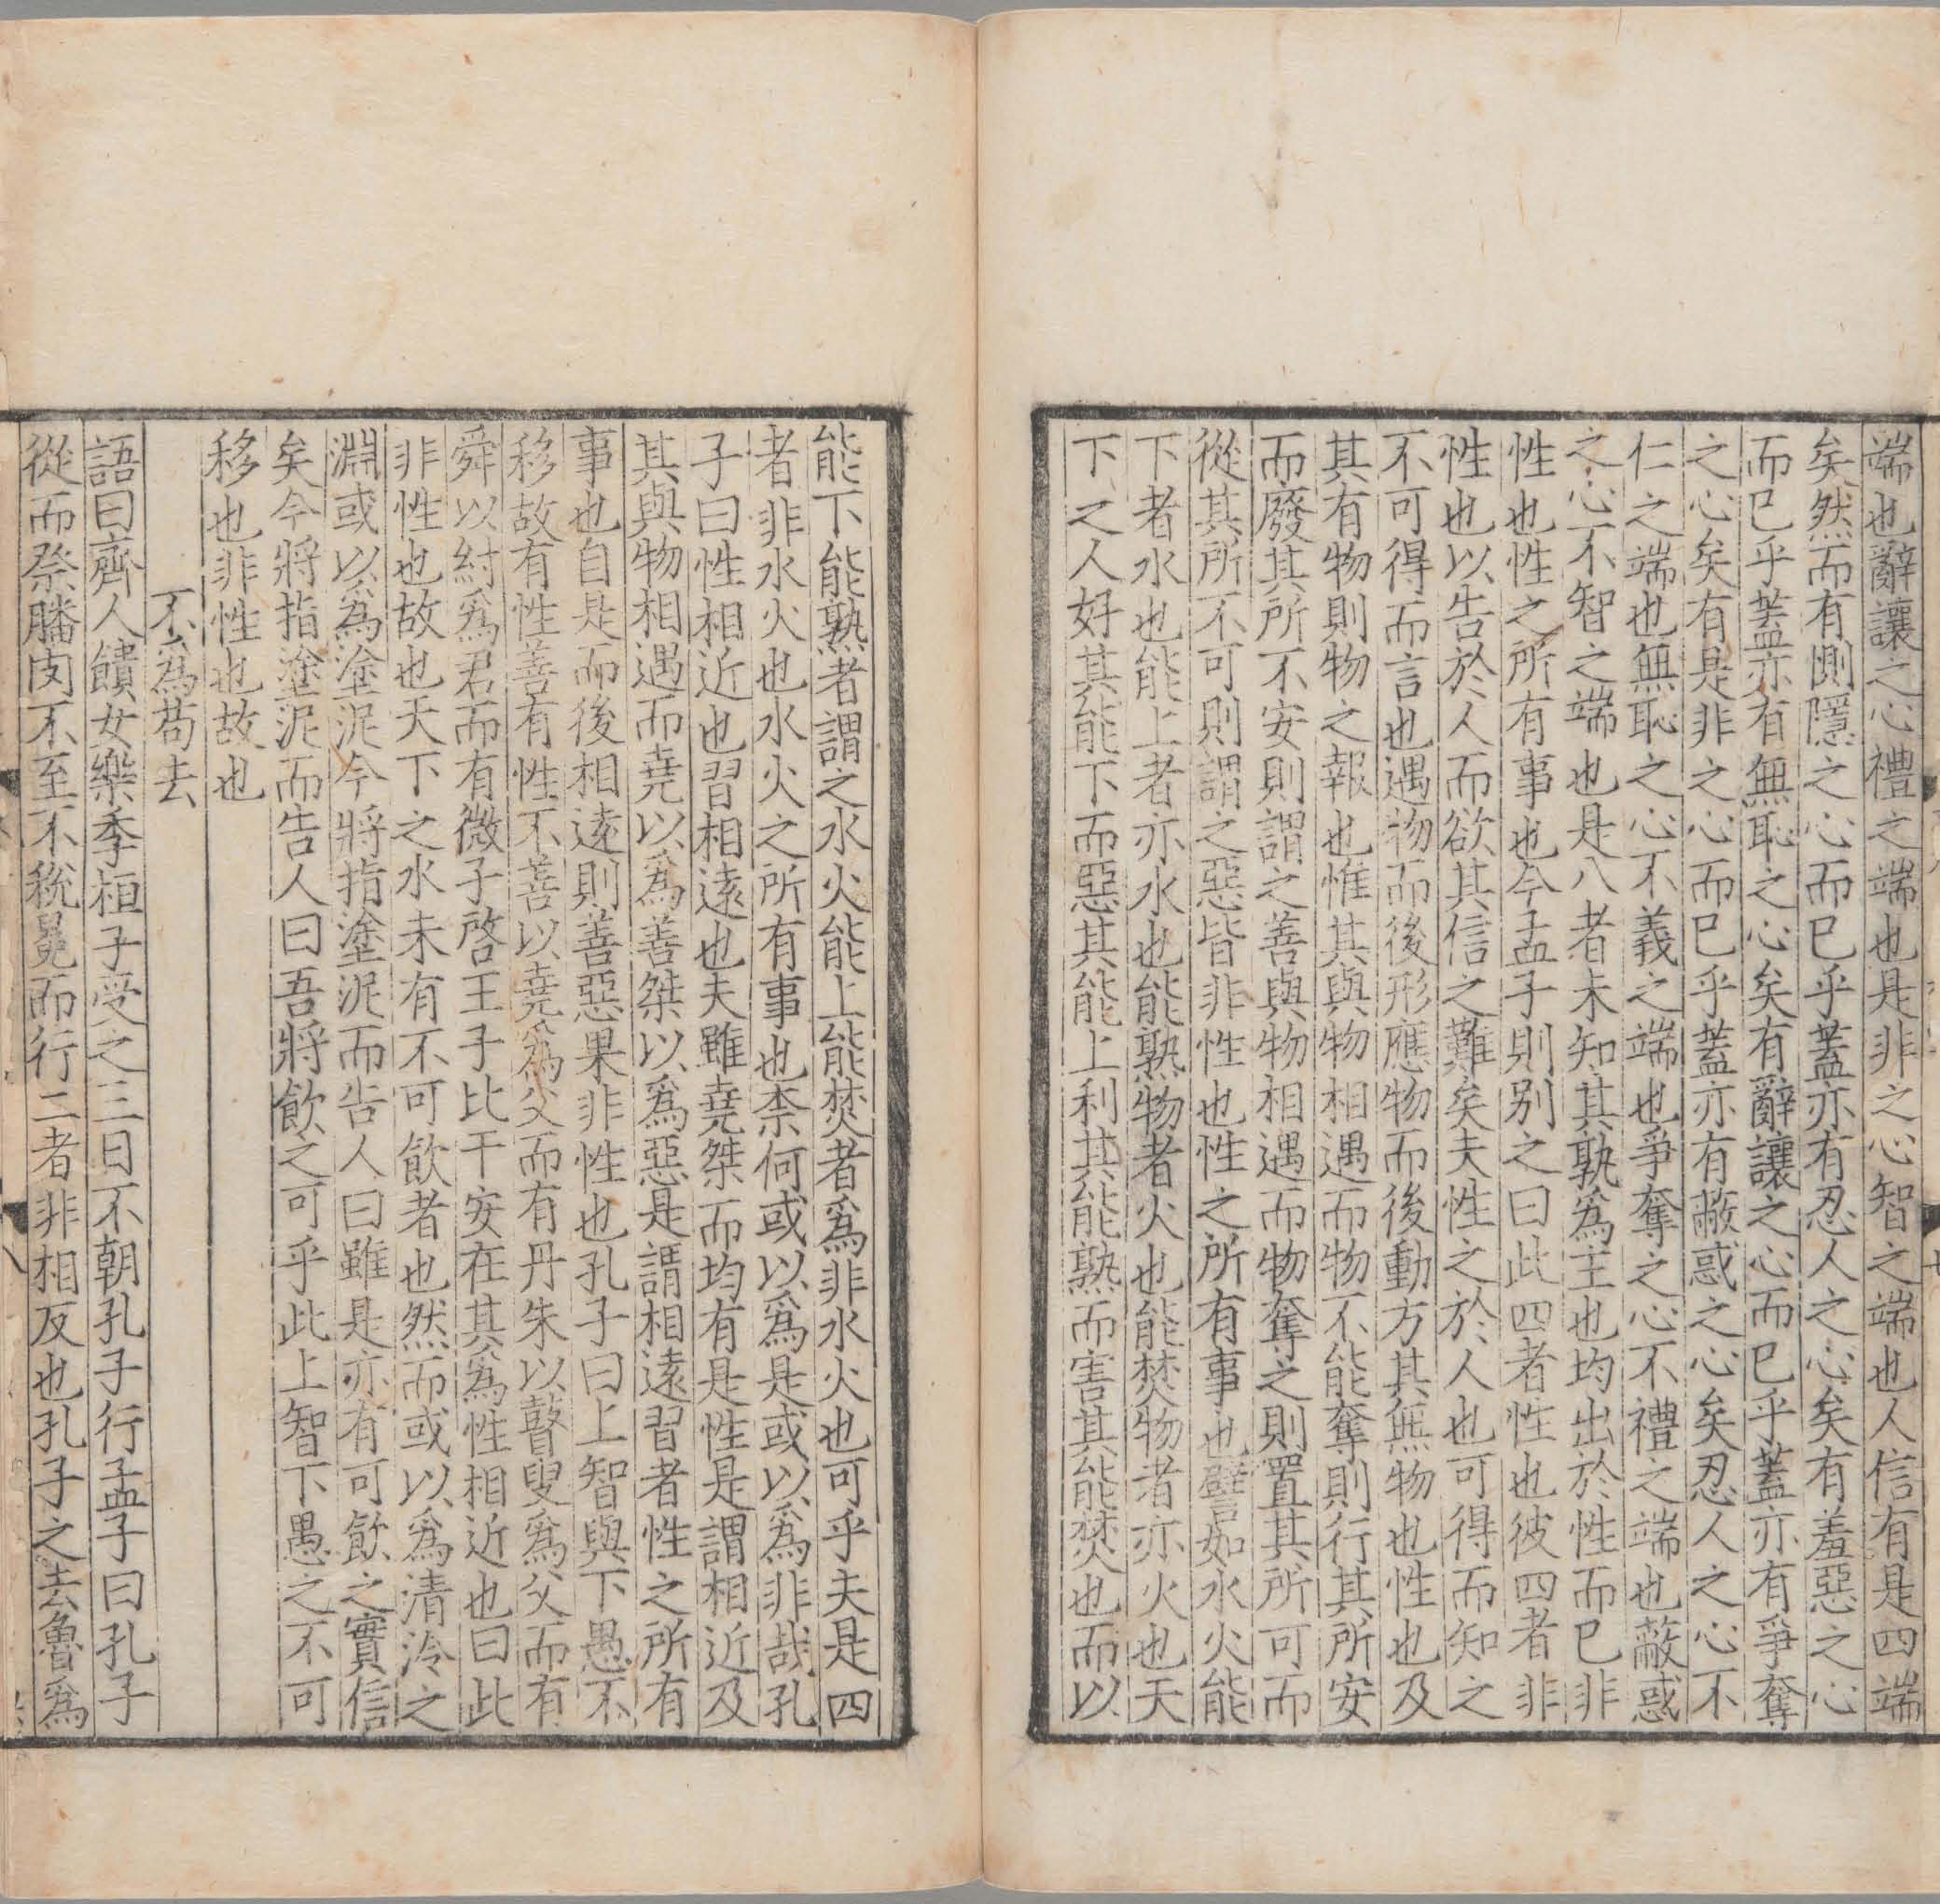 端也辭讓之心禮之端也是非之心智之端也人信有是四端
矣然而有惻隱之心而已乎蓋亦有忍人之心矣有羞惡之心
而已乎蓋亦有無恥之心矣有辭讓之心而已乎蓋亦有爭奪
之心矣有是非之心而已乎蓋亦有蔽惑之心矣忍人之心不
仁之端也無恥之心不義之端也爭奪之心不禮之端也蔽惑
之心不智之端也是八者未知其孰爲主也均出於性而已非
性也性之所有事也今孟子則别之曰此四者性也彼四者非
性也以告於人而欲其信之難矣夫性之於人也可得而知之
不可得而言也遇物而後形應物而後動方其無物也性也及
其有物則物之報也惟其與物相遇而物不能奪則行其所安
而廢其所不安則謂之善與物相遇而物奪之則置其所可而
從其所不可則謂之惡皆非性也性之所有事也譬如水火能
下者水也能上者亦水也能熟物者火也能焚物者亦火也天
下之人好其能下而惡其能上利其能熟而害其能焚也而以
能下能熟者謂之水火能上能焚者爲非水火也可乎夫是四
者非水火也水火之所有事也柰何或以爲是或以爲非哉孔
子曰性相近也習相遠也夫雖堯桀而均有是性是謂相近及
其與物相遇而堯以爲善桀以爲惡是謂相遠習者性之所有
事也自是而後相遠則善惡果非性也孔子曰上智與下愚不
移故有性善有性不善以堯爲父而有丹朱以瞽叟爲父而有
舜以紂爲君而有微子啓王子比干安在其爲性相近也曰此
非性也故也天下之水未有不可飲者也然而或以爲清泠之
淵或以爲塗泥今將指塗泥而告人曰雖是亦有可飲之實信
矣今將指塗泥而告人曰吾將飲之可乎此上智下愚之不可
移也非性也故也
不爲苟去
語曰齊人饋女樂季桓子受之三日不朝孔子行孟子曰孔子
從而祭膰肉不至不稅冕而行二者非相反也孔子之去魯爲